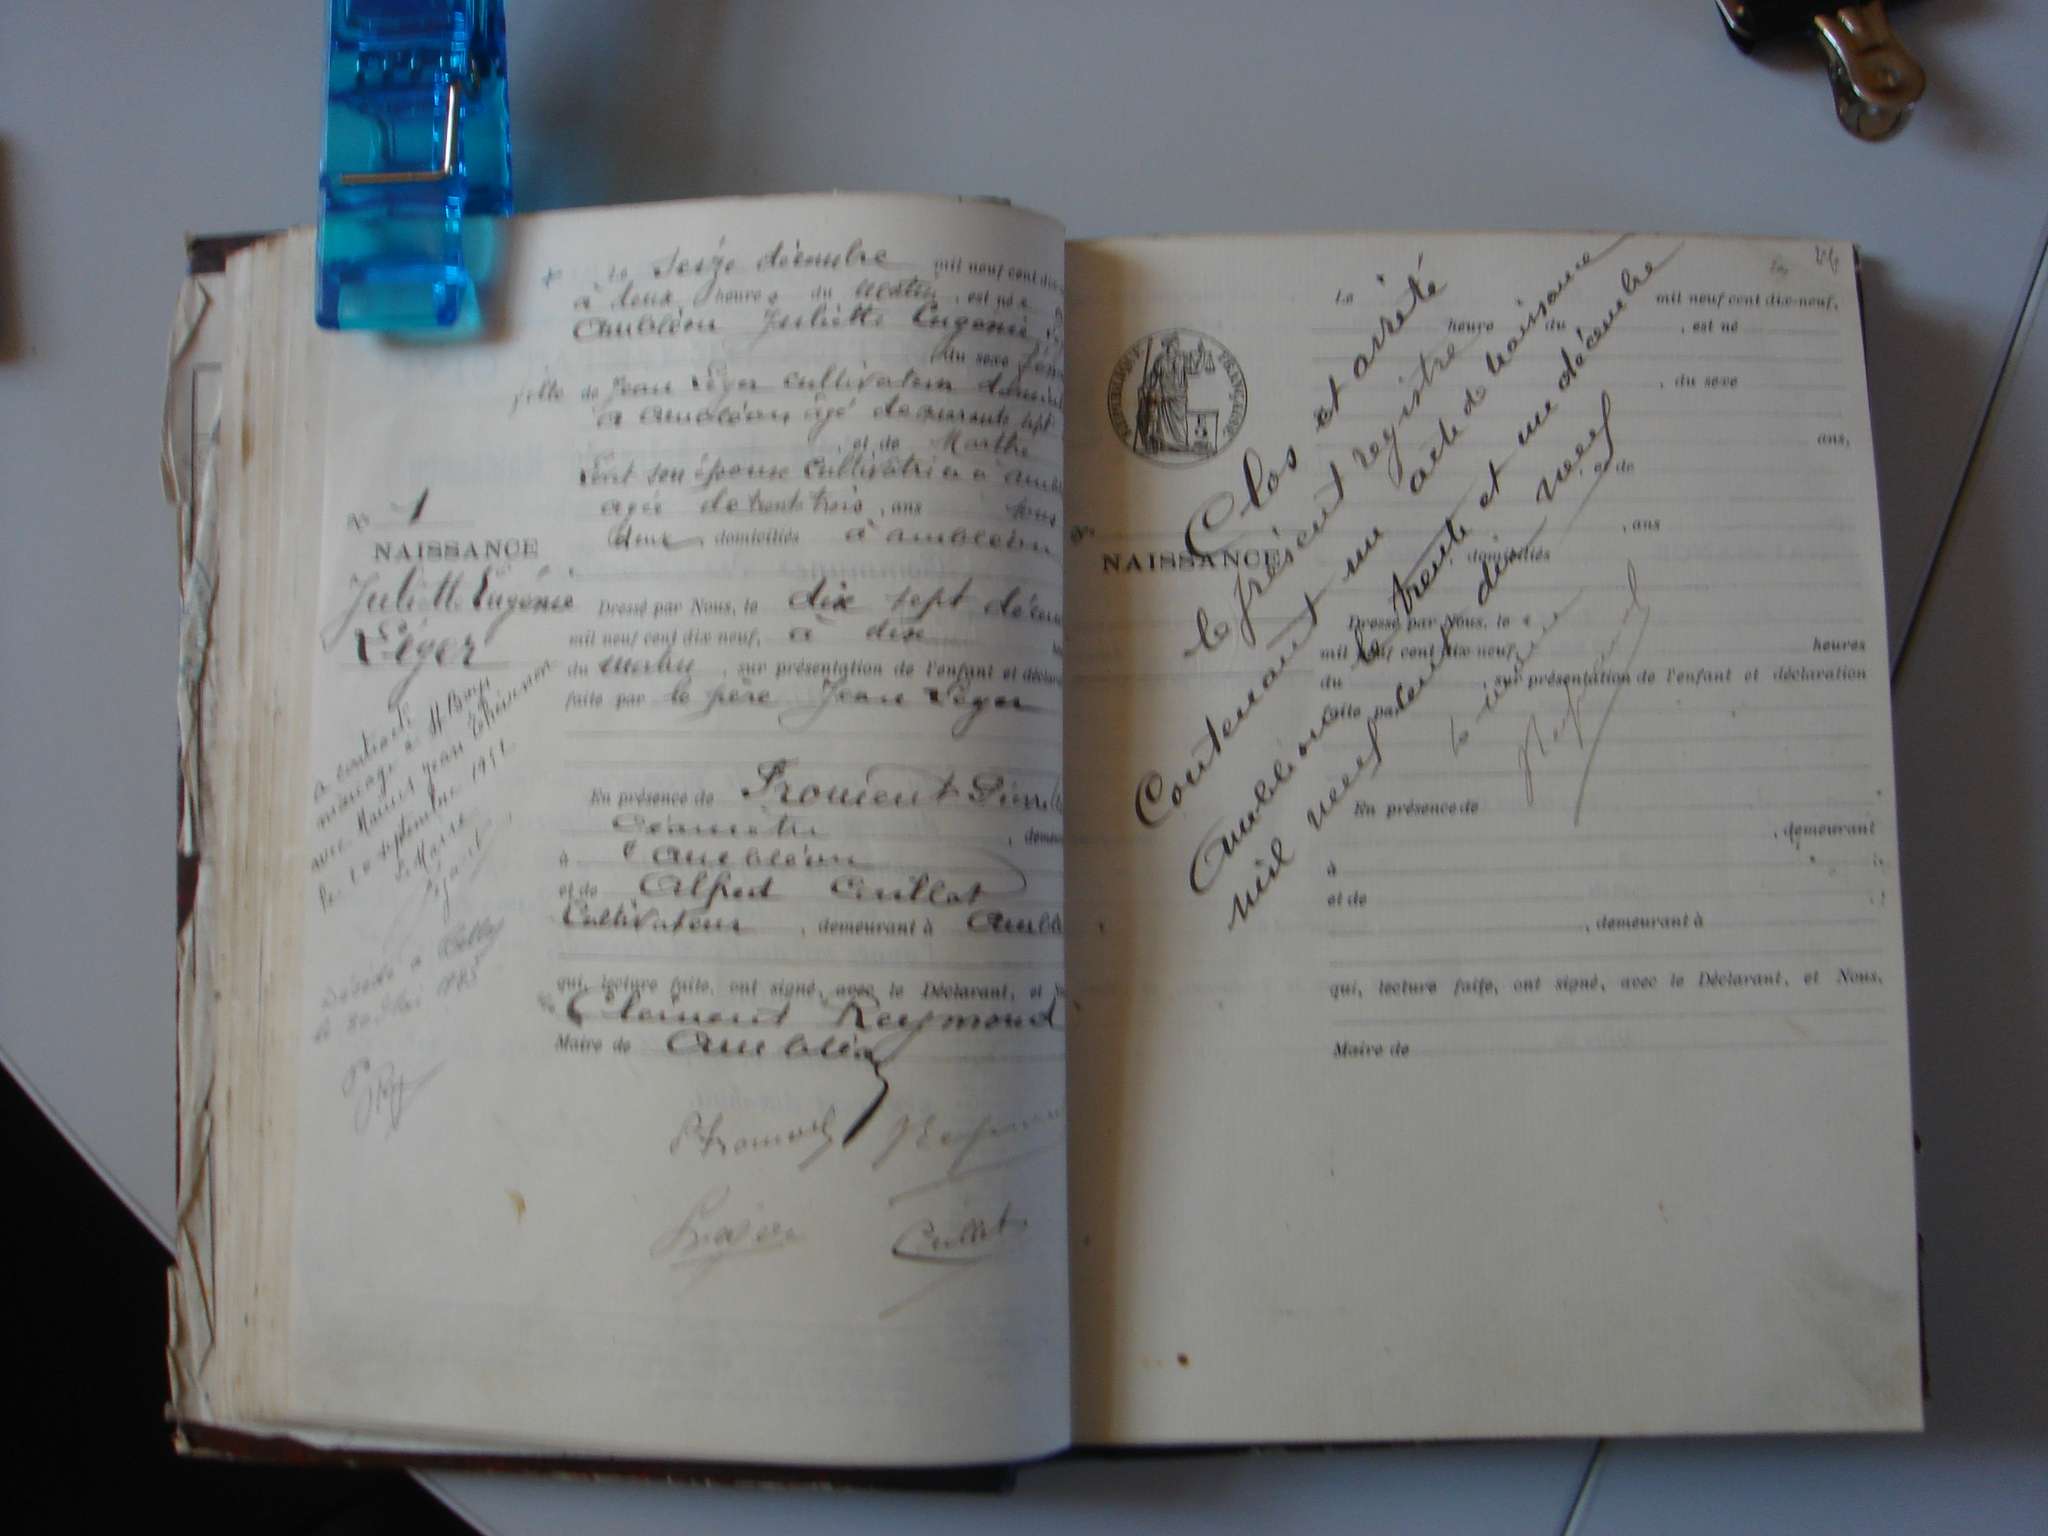 Le seize décembre mil neuf cent dix-
à deux heures du matin, est née
Ambléon Juliette Eugénie
du sexe fém
fille de Jean Léger cultivateur domicil
à Ambléon âgé de quarante sept
, et de Marthe
son épouse cultivatrice à Amblé
agée de trente trois, ans tous
deux domiciliés à Ambléon
No 1
NAISSANCE
Juliette Eugénie
Léger
Dressé par Nous, le dix sept décem
mil neuf cent dix-neuf, à dix
du matin, sur présentation de l'enfant et déclara
faite par le père Jean Léger
a contracté
mariage à St Bron
avec Marius Jean Thévenon
le septembre
Le Maire
En présence de Froment Pierre
, demeu
à Ambléon
et de Alfred Cullat
Cultivateur, demeurant à Amblé
Décédée à Belley
le Mai
qui, lecture faite, ont signé, avec le Déclarant, et N
Clément Reymond
Maire de Ambléon
Froment Reymond
Léger Cullat
Le mil neuf cent dix-neuf,
heure du , est né
RÉPUBLIQUE FRANÇAISE
, du sexe
ans,
et de
No
, ans
NAISSANCE
domiciliés
Dressé par Nous, le
mil neuf cent dix-neuf, heures
du , sur présentation de l'enfant et déclaration
faite par
En présence de
, demeurant
à
et de
, demeurant à
qui, lecture faite, ont signé, avec le Déclarant, et Nous,
Maire de
Clos et arrêté
le présent registre
Contenant un acte de naissance
Ambléon le trente et un décembre
mil neuf cent dix neuf
le maire
Reymond